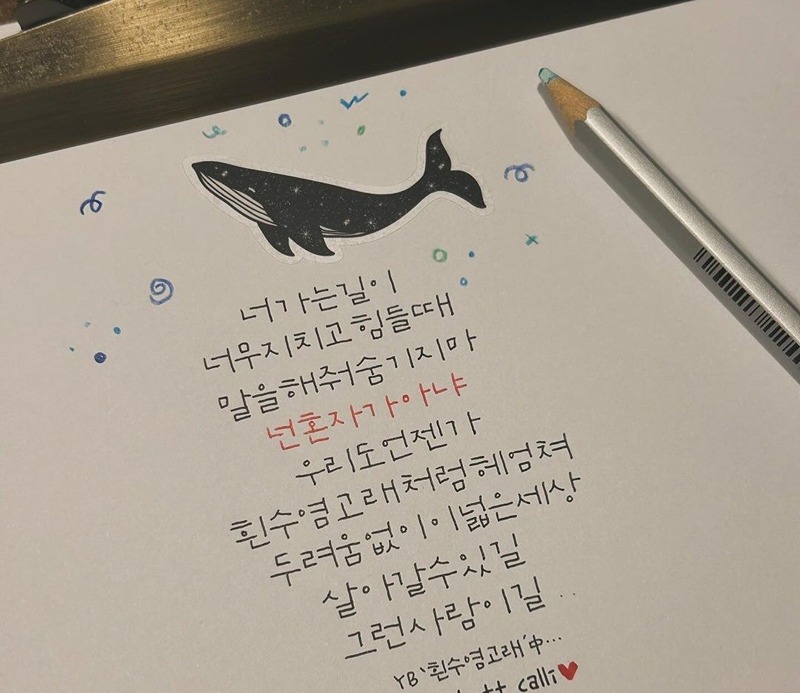 너가는길이
너무지치고힘들때
말을해줘숨기지마
넌혼자가아냐
우리도언젠가
흰수염고래처럼헤엄쳐
두려움없이이넓은세상
살아갈수있길
그런사람이길..
YB‘흰수염고래’中...
calli